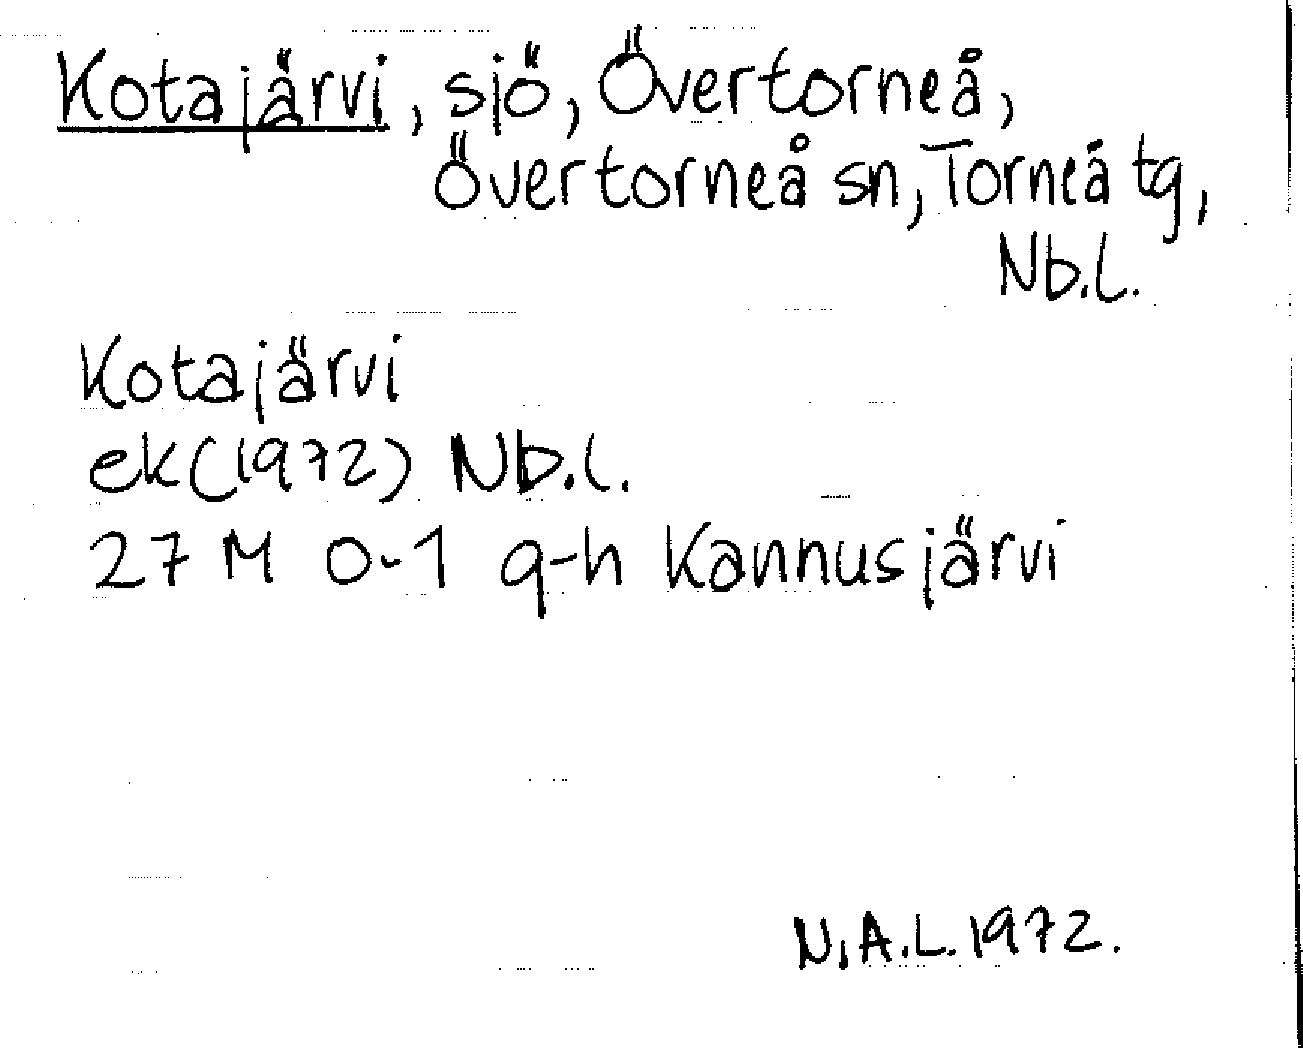 Kotajärvi, sjö, Övertorneå,
Övertorneå sn, Torneå tg,
Nb.l.
Kotajärvi
ek (1972) Nb.l.
27 M 0-1 g-h Kannusjärvi
N.A.L. 1972.